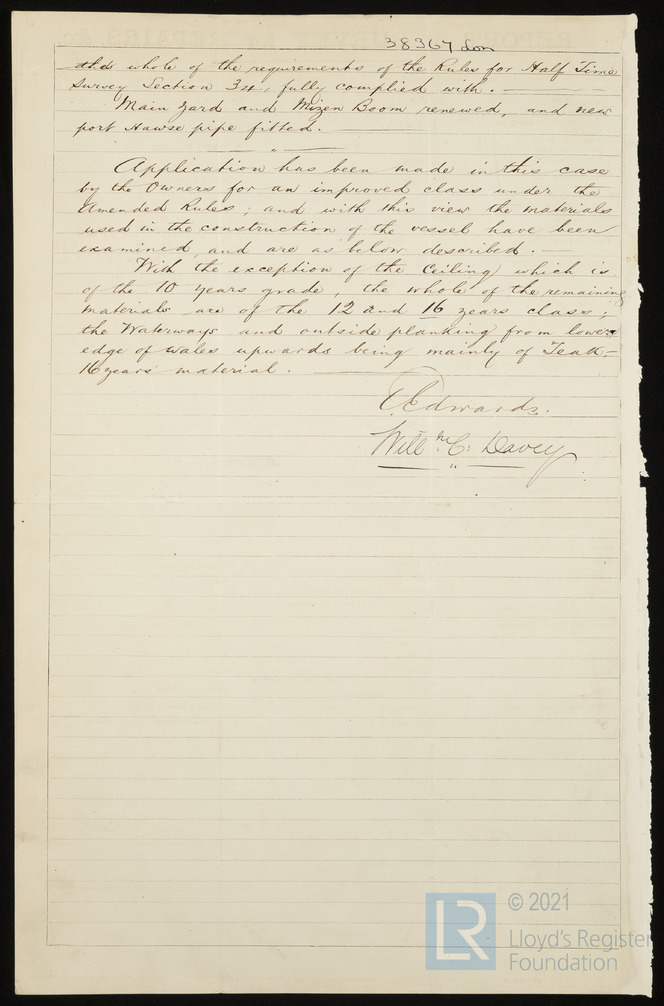 38367 Lon
the whole of the requirements of the Rules for Half Time
Survey Section 34, fully complied with.
Main Yard and Mizen Boom renewed, and new
port Hawse pipe fitted.
Application has been made in this case
by the Owners for an improved class under the
Amended Rules; and with this view the materials
used in the construction of the vessel have been
examined, and are as below described.
With the exception of the Ceiling which is
of the 10 years grade, the whole of the remaining
materials are of the 12 and 16 years class;
the Waterways and outside planking from lower
edge of Wales upwards being mainly of Teak -
16 years material.
Edwards.
Willm. C. Davey
LR
© 2021
Lloyd's Register
Foundation